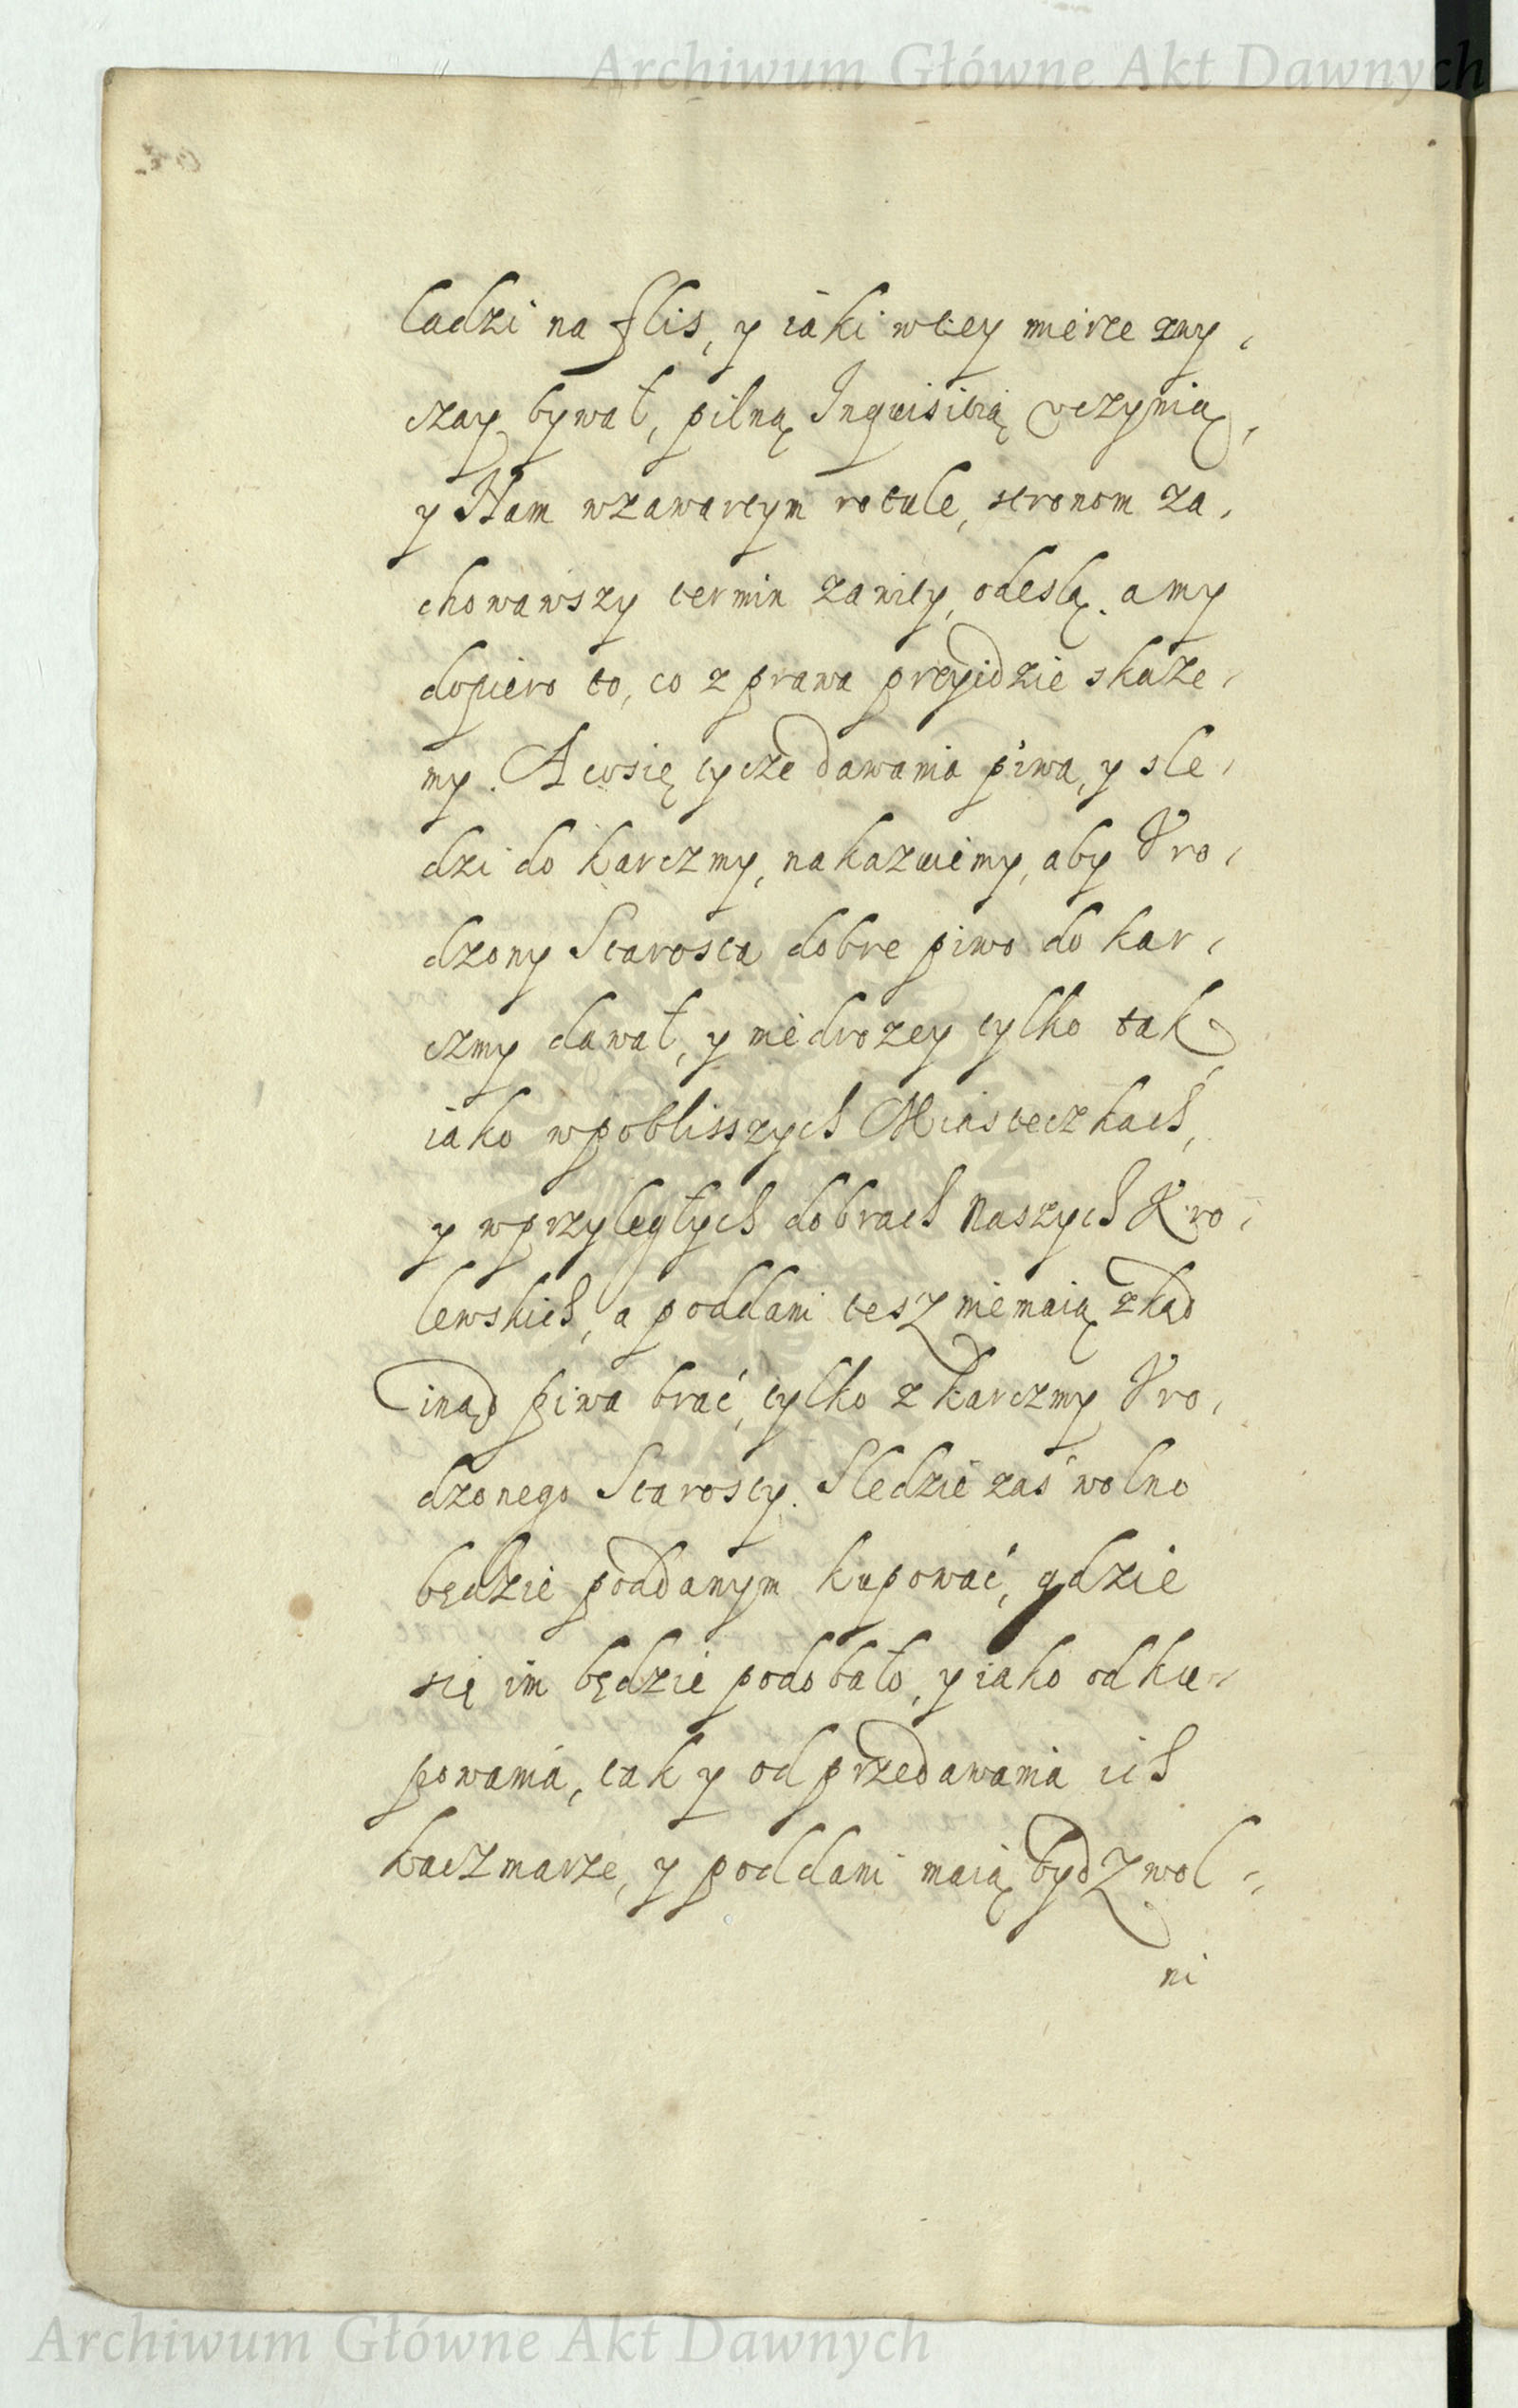 Archiwum Główne Akt Dawnych
ladzi na flis, y iaki wtey mierze zwy,
czay bywał, pilną Inquisitią vczynią,
y Nam wzawartym rotule, stronom za,
chowawszy termin zawity, odeslą. a my
dopiero to, co z prawa przyidzie skaże,
my. A cosię tycze dawania piwa, y sle,
dzi do karczmy, nakazuiemy, aby Vro,
dzony Starosta dobre piwo do kar,
czmy dawał, y niedrożey tylko tak
iako wpoblisszych Miasteczkach,
y wprzyległych dobrach naszych Kro,
lewskich, a poddani tesz niemaią zkąd
inąd piwa brać, tylko z karczmy Vro,
dzonego Starosty. Sledzie zaś wolno
będzie poddanym kupować, gdzie
się im będzie podobało, y iako od ku,
powania, tak y od przedawania ich
kaczmarze, y poddani maią bydz wol,
ni
Archiwum Główne Akt Dawnych